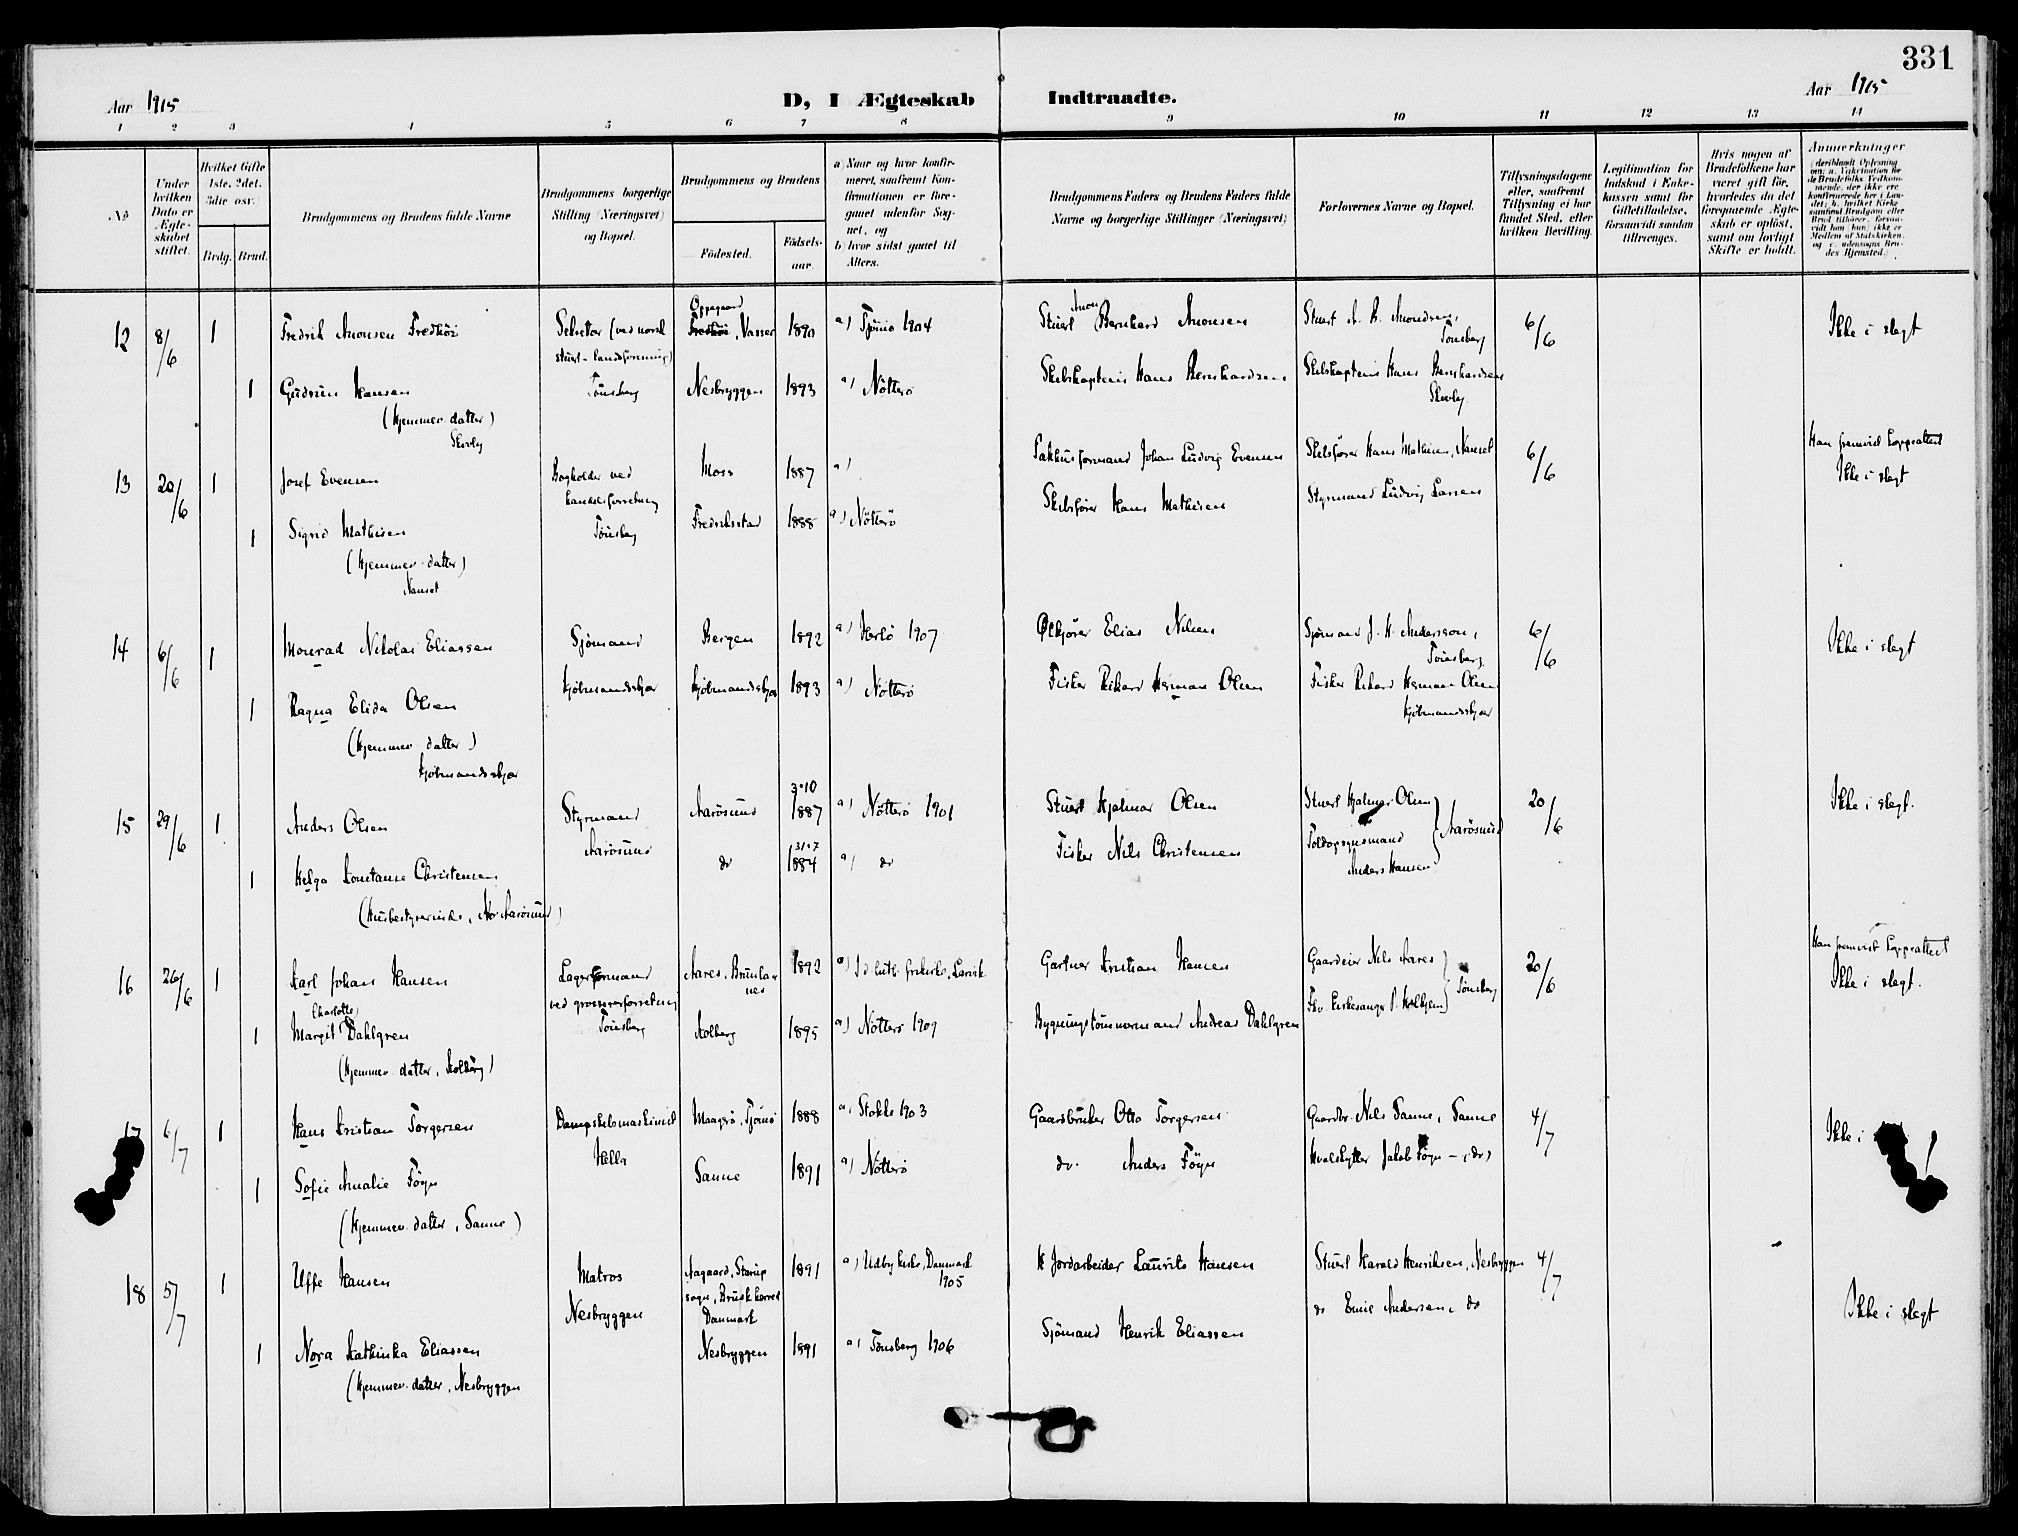 331
Aar 1915
D, I Ægteskab Indtraadte.
Aar 1915
1 2 3 4 5 6 7 8 9 10 11 12 13 14
No
Under hvilken Dato er Ægteskabet stiftet.
Hvilket Gifte 1ste. 2det. 3die osv.)
Brdg. Brud.
Brudgommens og Brudens fulde Navne
Brudgommens borgerlige Stilling (Næringsvei) og Bopæl.
Brudgommens og Brudens
Fødested.
Fødselsaar.
a) Naar og hvor konfirmeret, saafremt Konfirmationen er foregaaet udenfor Sognet, og
b) hvor sidst gaaet til Alters.
Brudgommens Faders og Brudens Faders fulde Navne og borgerlige Stillinger (Næringsvei)
Forlovernes Navne og Bopæl.
Tillysningsdagene eller, saafremt Tillysning ei har fundet Sted, efter hvilken Bevilling.
Legitimation for Indskud i Enkekassen samt for Giftetilladelse, forsaavidt saadan tiltrænges.
Hvis nogen af Brudefolkene har været gift før, hvorledes da det foregaaende Ægteskab er opløst, samt om lovligt Skifte er holdt.
Anmerkninger
12 8/6 1 Fredrik Amonsen Fredhöi
Sekretær (ved norsk stuert-landsforening) Tönsberg
Oppegaard, Vasser 1890 a) Tjömö 1904
Stuert Amon Bernhard Amonsen
Stuert A. B. Amondsen, Tönsberg
6/6 Ikke i slegt
1 Gudrun Hansen
(hjemmev. datter) Skovly
Nesbryggen 1893 a) Nötterö
Skibskaptein Hans Bernhardsen
Skibskaptein Hans Bernhardsen Skovly
13 20/6 1 Josef Evensen
Bogholder ved handelsforretning Tönsberg
Moss 1887 a)
Pakhusformand Johan Ludvig Evensen
Skibsfører Hans Mathisen, Nanset
6/6 Han fremvist Ikke i slegt
1 Sigrid Mathisen
(hjemmev. datter)
Nanset
Fredriksstad 1888 a) Nötterö
Skibsfører Hans Mathisen
Styrmand Ludvig Larsen
14 6/6 1 Monrad Nikolai Eliassen
Sjömand
Bergen 1892 a) Herlö 1907
Elias Nilsen
Sjömand J. H. Andersson, Tönsberg
6/6 Ikke i slegt
1 Ragna Elida Olsen
(hjemmev. datter)
Kjöbmandsskjær
Kjöbmandsskjær
Kjöbmandsskjær 1893 a) Nötterö
Fisker Rikard Herman Olsen
Fisker Rikard Herman Olsen
Kjöbmandsskjær
15 29/6 1 Anders Olsen
Styrmand
Aarösund
Aarösund 3-10 1887 a) Nötterö 1901
Stuert Hjalmar Olsen
Stuert Hjalmar Olsen
Toldopsynsmand Anders Hansen } Aarösund
20/6 Ikke i slegt.
1 Helga Konstanse Christensen
(Husbestyrerinde, Aarösund)
do 31-7 1884 a) do
Fisker Nils Christensen
16 26/6 1 Karl Johan Hansen
Lagerformand ved grossererforretning Tönsberg
Aares, Brunlanes 1892 a) frikirke, Larvik
Gartner Kristian Hansen
Gaardeier Nils Aares
Fhv Kirkesanger P. } Tönsberg
20/6 Han fremvist Ikke i slegt.
1 Charlotte
Margit Dahlgren
(hjemmev. datter, Kolberg)
Kolberg 1895 a) Nötterö 1909
Bygningstömmermand Andreas Dahlgren
17 6/7 1 Hans Kristian Torgersen
Dampskibsmaskinist
Hella
Maagerö, Tjömö 1888 a) Stokke 1903
Gaardbruker Otto Torgersen
Gaardbr. Nils Sanne, Sanne
4/7 Ikke i
1 Sofie Amalie Föyn
(hjemmev. datter, Sanne)
Sanne 1891 a) Nötterö
do. Anders Föyn
Hvalskytter Jakob Föyn - (do)
18 5/7 1 Uffe Hansen
Matros
Nesbryggen
Aagaard, Starup sogn, Brusk herred Danmark 1891 a) Udby kirke, Danmark 1905
Jordarbeider Laurits Hansen
Stuert Harald Henriksen, Nesbryggen
4/7 Ikke i slegt
1 Nora Kathinka Eliassen
(hjemmev. datter, Nesbryggen
Nesbryggen 1891 a) Tönsberg 1906
Sjömand Henrik Eliassen
do Emil Andersen, do